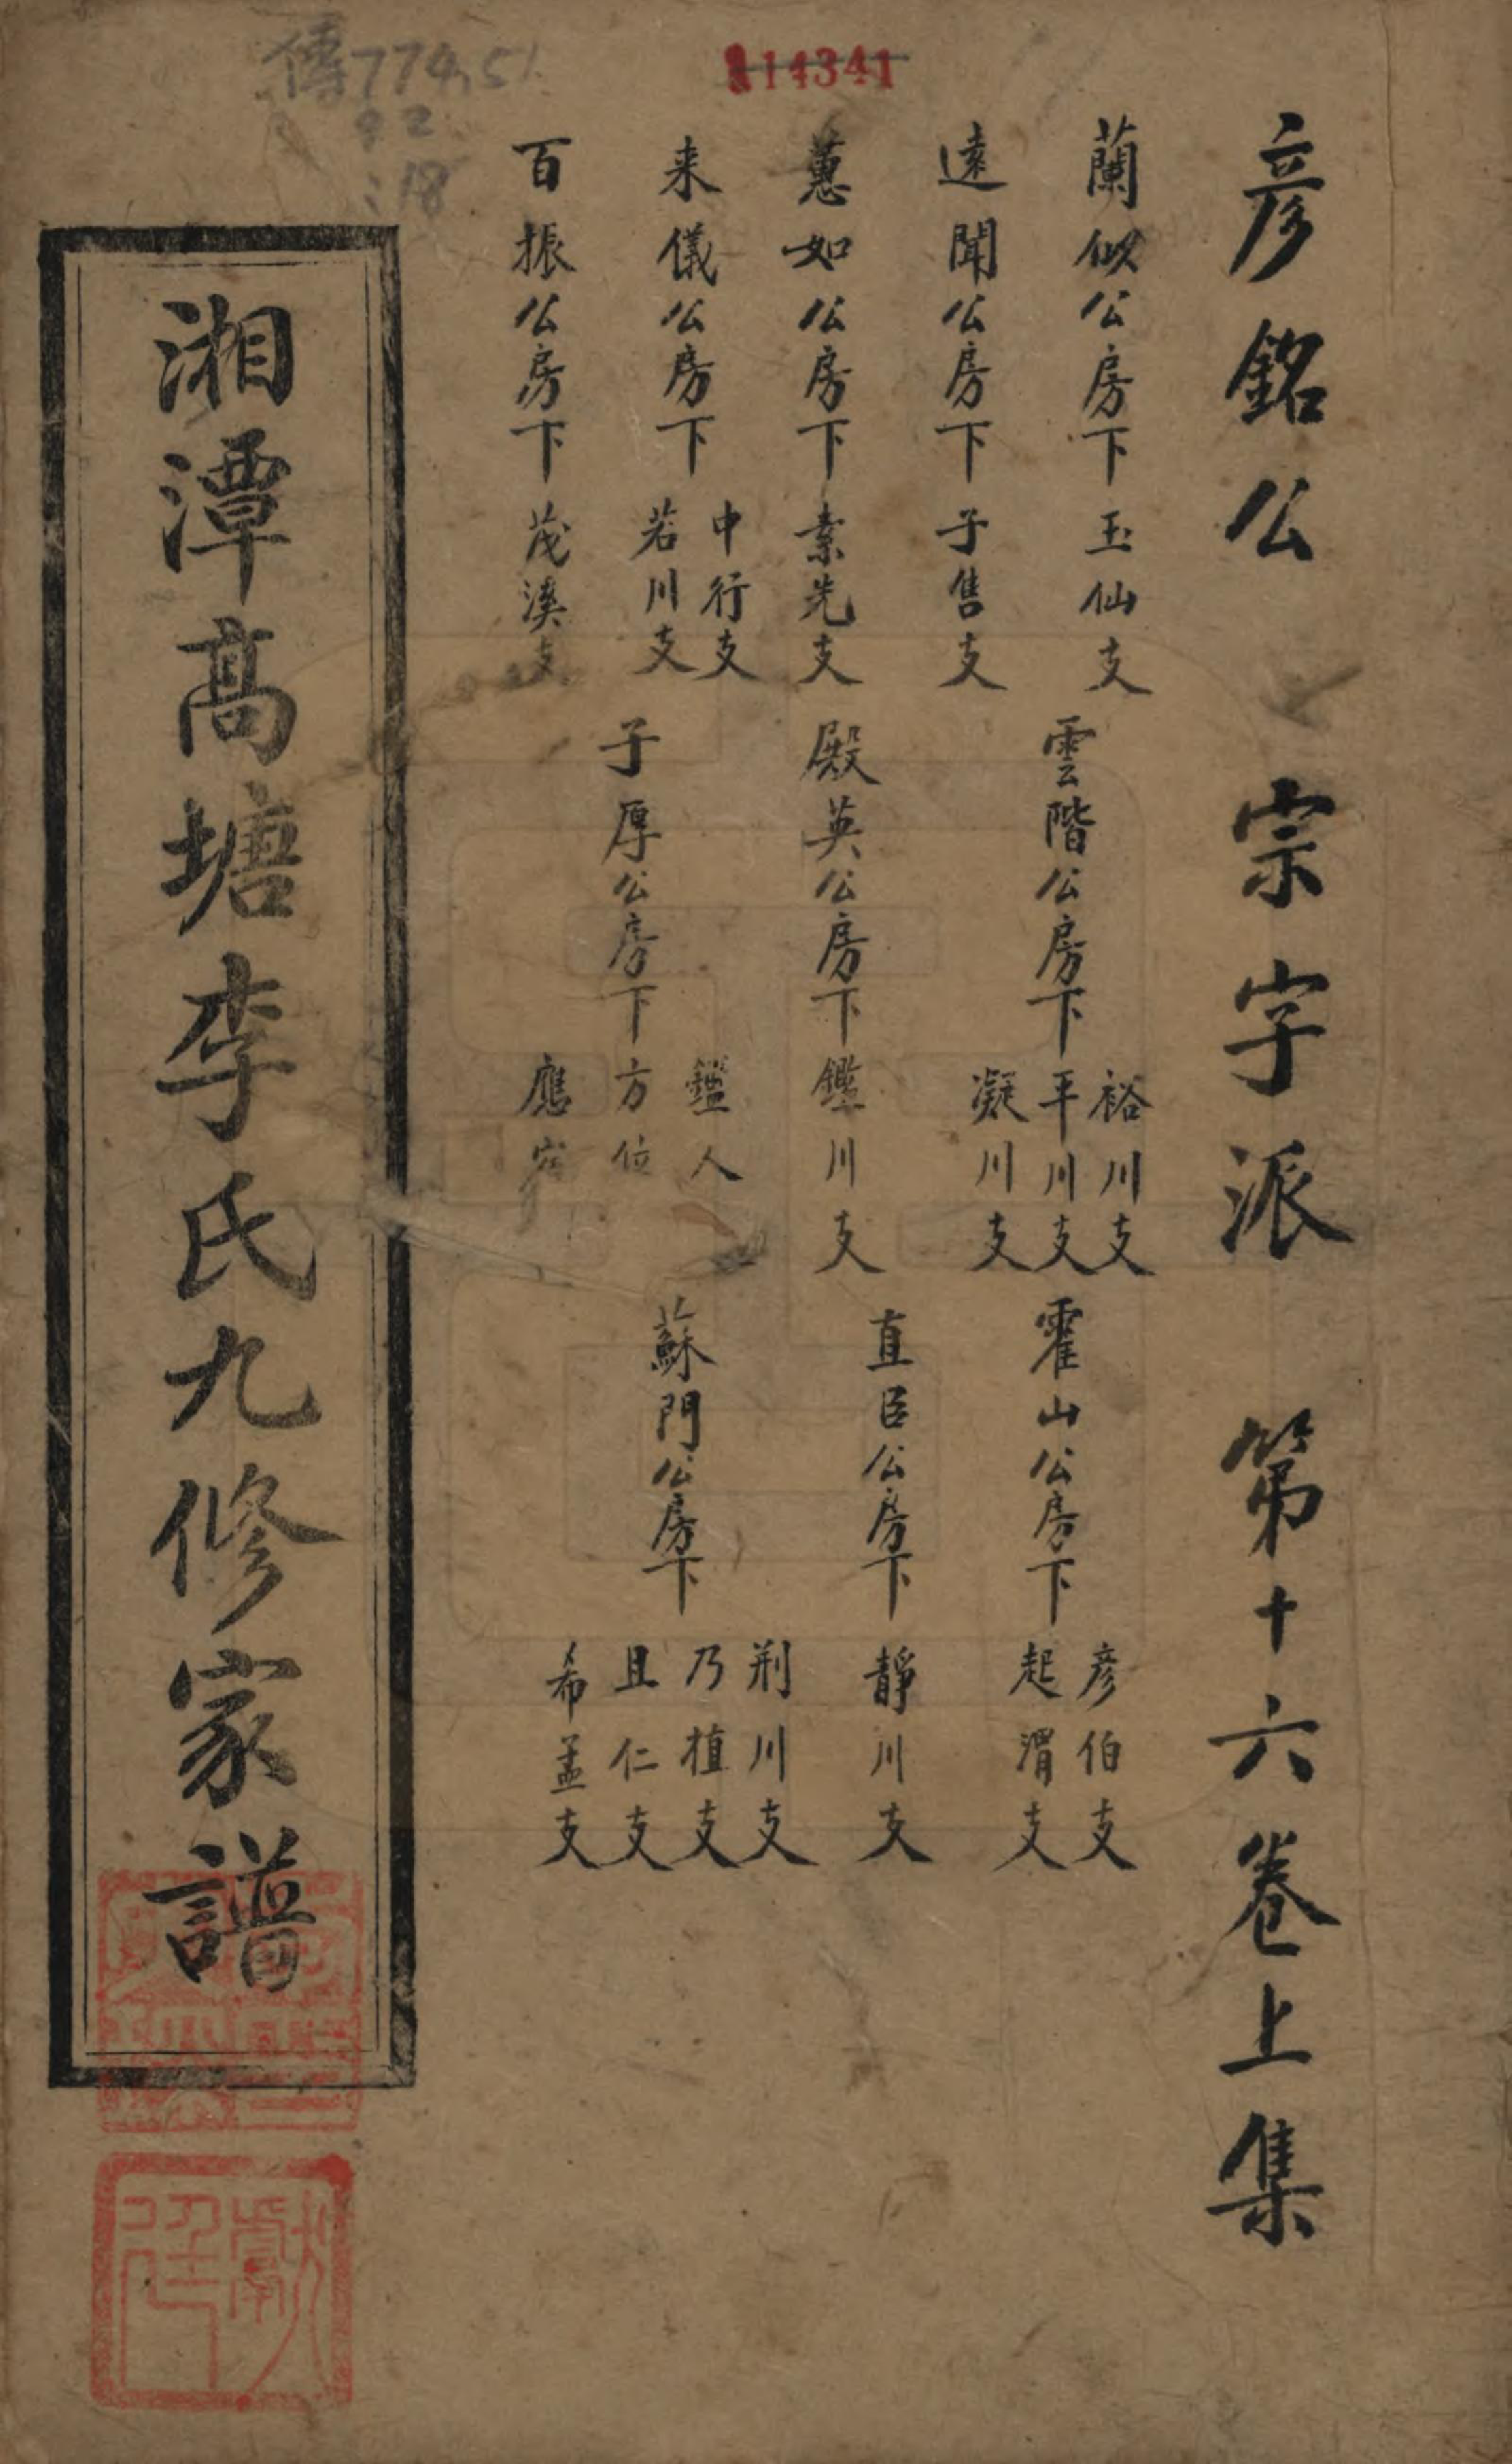 彦銘公　宗字派　第十六卷上集
蘭似公房下玉仙支
遠聞公房下子售支
蕙如公房下素先支
来儀公房下中行支
若川支
百振公房下茂溪支
雲階公房下裕川支
平川支
凝川支
殿英公房下鑑川支
子厚公房下鑑人
方位
應
霍山公房下彦伯支
起渭支
直臣公房下静川支
蘇門公房下荆川支
乃植支
且仁支
希孟支
湘潭高塘李氏九修家譜
14341
傳774.51
92
:18